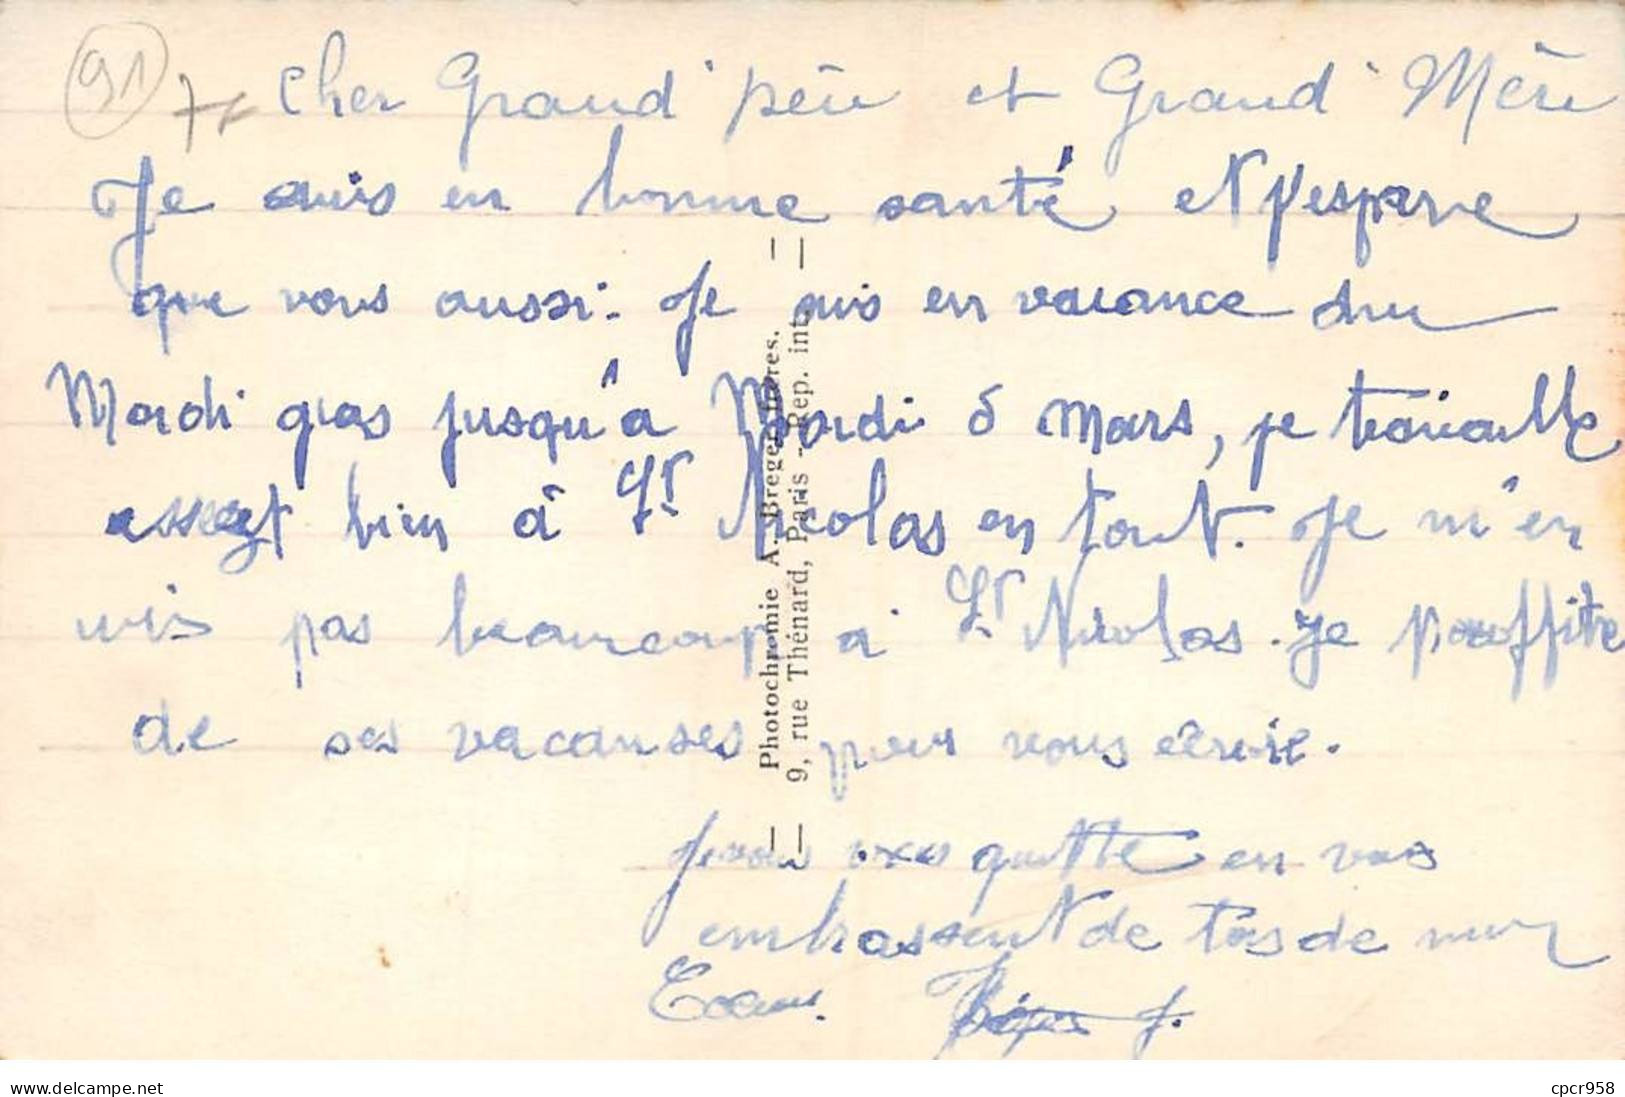 91
Cher Grand'père et Grand'Mère
Je suis en bonne santé et j'espere
que vous aussi. Je suis en vacance du
Mardi gras jusqu'à Mardi 5 mars, je travaille
assezt bien à St Nicolas en tout. Je m'en
nuis pas beaucoup a St Nicolas. Je proffite
de ses vacanses pour vous écrire.
Je vous quitte en vous
embrassent de tos de mon
Cœur.
Photochromie A. Breger frères.
9, rue Thénard, Paris - Rep. int.
www.delcampe.net
cpcr958